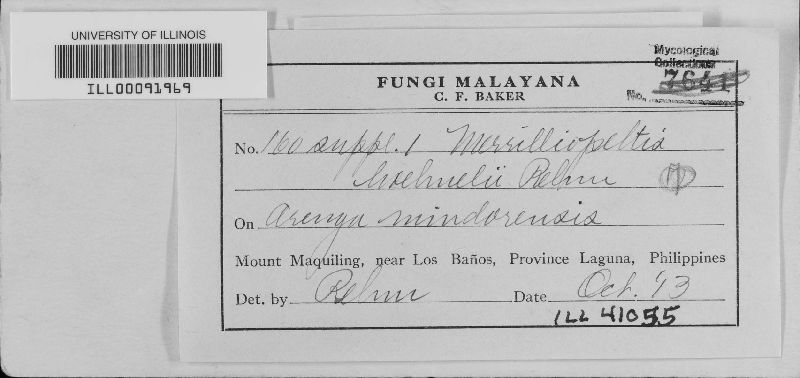 UNIVERSITY OF ILLINOIS
ILL00091969
Mycological
Collections
No. 7641
FUNGI MALAYANA
C. F. BAKER
No. 160 suppl. 1 Merrilliopeltis
Hoehnelii Rehm
On Arenga mindorensis
Mount Maquiling, near Los Baños, Province Laguna, Philippines
Det. by Rehm Date Oct. '13
ILL 41055